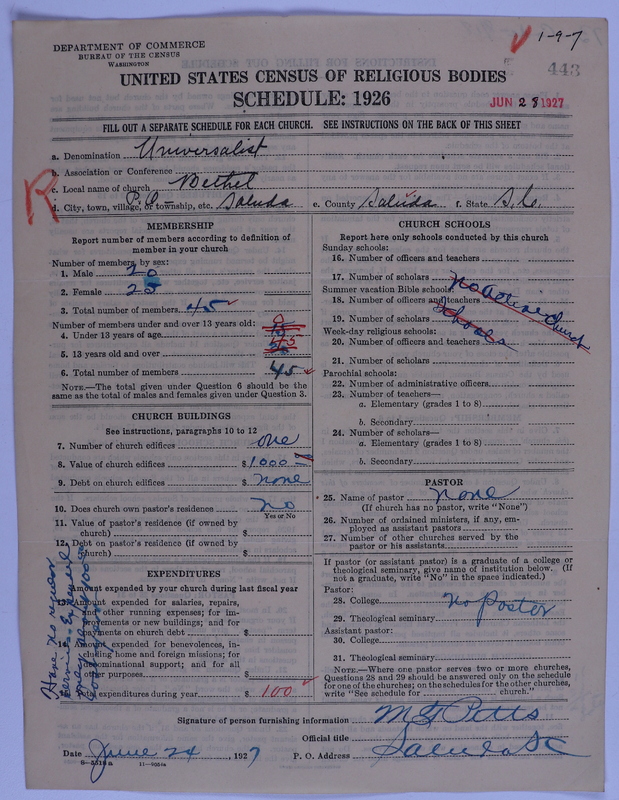 1-9-7
DEPARTMENT OF COMMERCE
BUREAU OF THE CENSUS
WASHINGTON
443
UNITED STATES CENSUS OF RELIGIOUS BODIES
SCHEDULE: 1926
JUN 28 1927
FILL OUT A SEPARATE SCHEDULE FOR EACH CHURCH. SEE INSTRUCTIONS ON THE BACK OF THIS SHEET
a. Denomination Universalist
b. Association or Conference
c. Local name of church Bethel
R
d. City, town, village, or township, etc. P.O- Saluda e. County Saluda f. State S.C.
MEMBERSHIP
Report number of members according to definition of
member in your church
Number of members, by sex:
1. Male 20
2. Female 25
3. Total number of members 45
Number of members under and over 13 years old:
4. Under 13 years of age 0
5. 13 years old and over 45
6. Total number of members 45
NOTE.—The total given under Question 6 should be the
same as the total of males and females given under Question 3.
CHURCH BUILDINGS
See instructions, paragraphs 10 to 12
7. Number of church edifices one
8. Value of church edifices $1000
9. Debt on church edifices $ none
10. Does church own pastor's residence? no
Yes or No
11. Value of pastor's residence (if owned by
church) $
12. Debt on pastor's residence (if owned by
church) $
EXPENDITURES
Amount expended by your church during last fiscal year
13. Amount expended for salaries, repairs,
and other running expenses; for im-
provements or new buildings; and for
payments on church debt $
14. Amount expended for benevolences, in-
cluding home and foreign missions; for
denominational support; and for all
other purposes $
15. Total expenditures during year $ 100
Have no regular
CHURCH SCHOOLS
Report here only schools conducted by this church
Sunday schools:
16. Number of officers and teachers
17. Number of scholars
Summer vacation Bible schools:
18. Number of officers and teachers
19. Number of scholars
no active church
schools
Week-day religious schools:
20. Number of officers and teachers
21. Number of scholars
Parochial schools:
22. Number of administrative officers
23. Number of teachers—
a. Elementary (grades 1 to 8)
b. Secondary
24. Number of scholars—
a. Elementary (grades 1 to 8)
b. Secondary
PASTOR
25. Name of pastor none
(If church has no pastor, write "None")
26. Number of ordained ministers, if any, em-
ployed as assistant pastors
27. Number of other churches served by the
pastor or his assistants
If pastor (or assistant pastor) is a graduate of a college or
theological seminary, give name of institution below. (If
not a graduate, write "No" in the space indicated.)
Pastor:
28. College
no Pastor
29. Theological seminary
Assistant pastor:
30. College
31. Theological seminary
NOTE.—Where one pastor serves two or more churches,
Questions 28 and 29 should be answered only on the schedule
for one of the churches; on the schedules for the other churches,
write "See schedule for church."
Signature of person furnishing information M G Pitts
Official title
Date June 24, 1927 P. O. Address Saluda SC
8-5518a 11-9051a